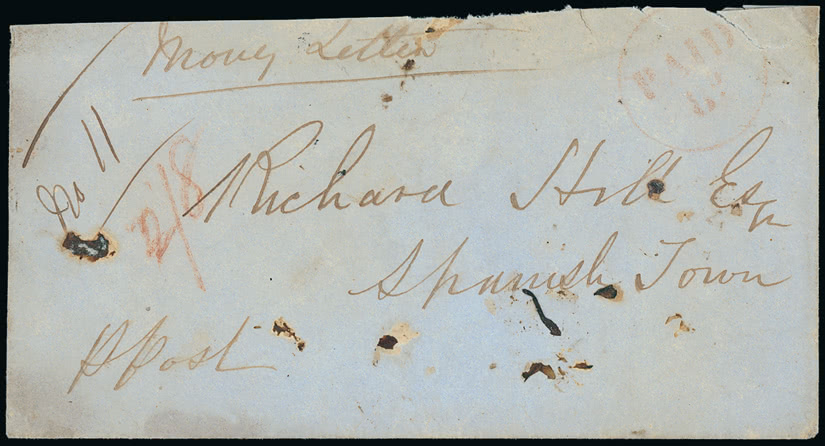 Money Letter
PAID
No 11
2/8
Richard Hill Esqr
Spanish Town
p post